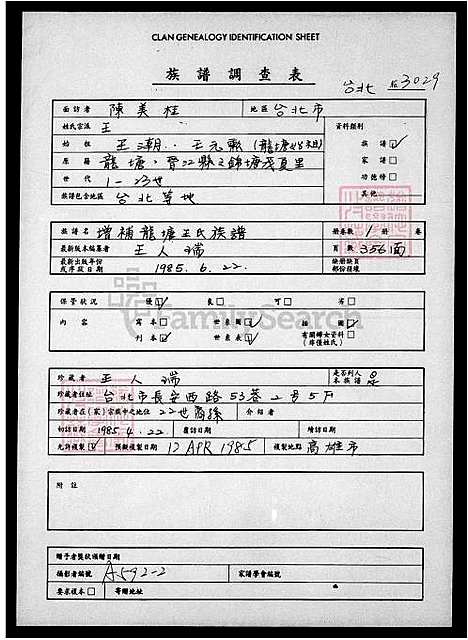 CLAN GENEALOGY IDENTIFICATION SHEET
族譜調查表
台北 3029
面訪者 陳美桂 地區 台北市
姓氏宗派 王 資料類別
始祖 王潮 王元 (龍塘 族譜 ☑
原籍 龍塘, 晋江縣 錦塘 夏里 家譜 □
世代 1-23世 功德榜 □
族譜包含地區 台北等地 其他
族譜名 增補龍塘王氏族譜 冊卷數 1 冊 卷
最新版本編纂者 王人瑞 頁數 356面
最新出版年份或序跋日期 1985.6.22. 缺冊缺頁部份殘壞
保管狀況 優☑ 良□ 可□ 劣□
內容 寫本□ 世系圖☑ 插圖☑
刊本☑ 世系表□ 有關婦女資料(庠僅姓氏)□
FamilySearch
珍藏者 王人瑞 是否列入本族譜 是
珍藏者住址 台北市長安西路53巷2号5F
珍藏者在(家)宗族中之地位 22世裔孫 介紹者
初訪日期 1985.4.22 覆訪日期 續訪日期
允許複製☑ 預擬複製日期 12 APR 1985 複製地點 高雄市
附註
贈予者獎狀頒贈日期
攝影者編號 A592-2 家譜學會編號
要求複本□ 寄贈地址